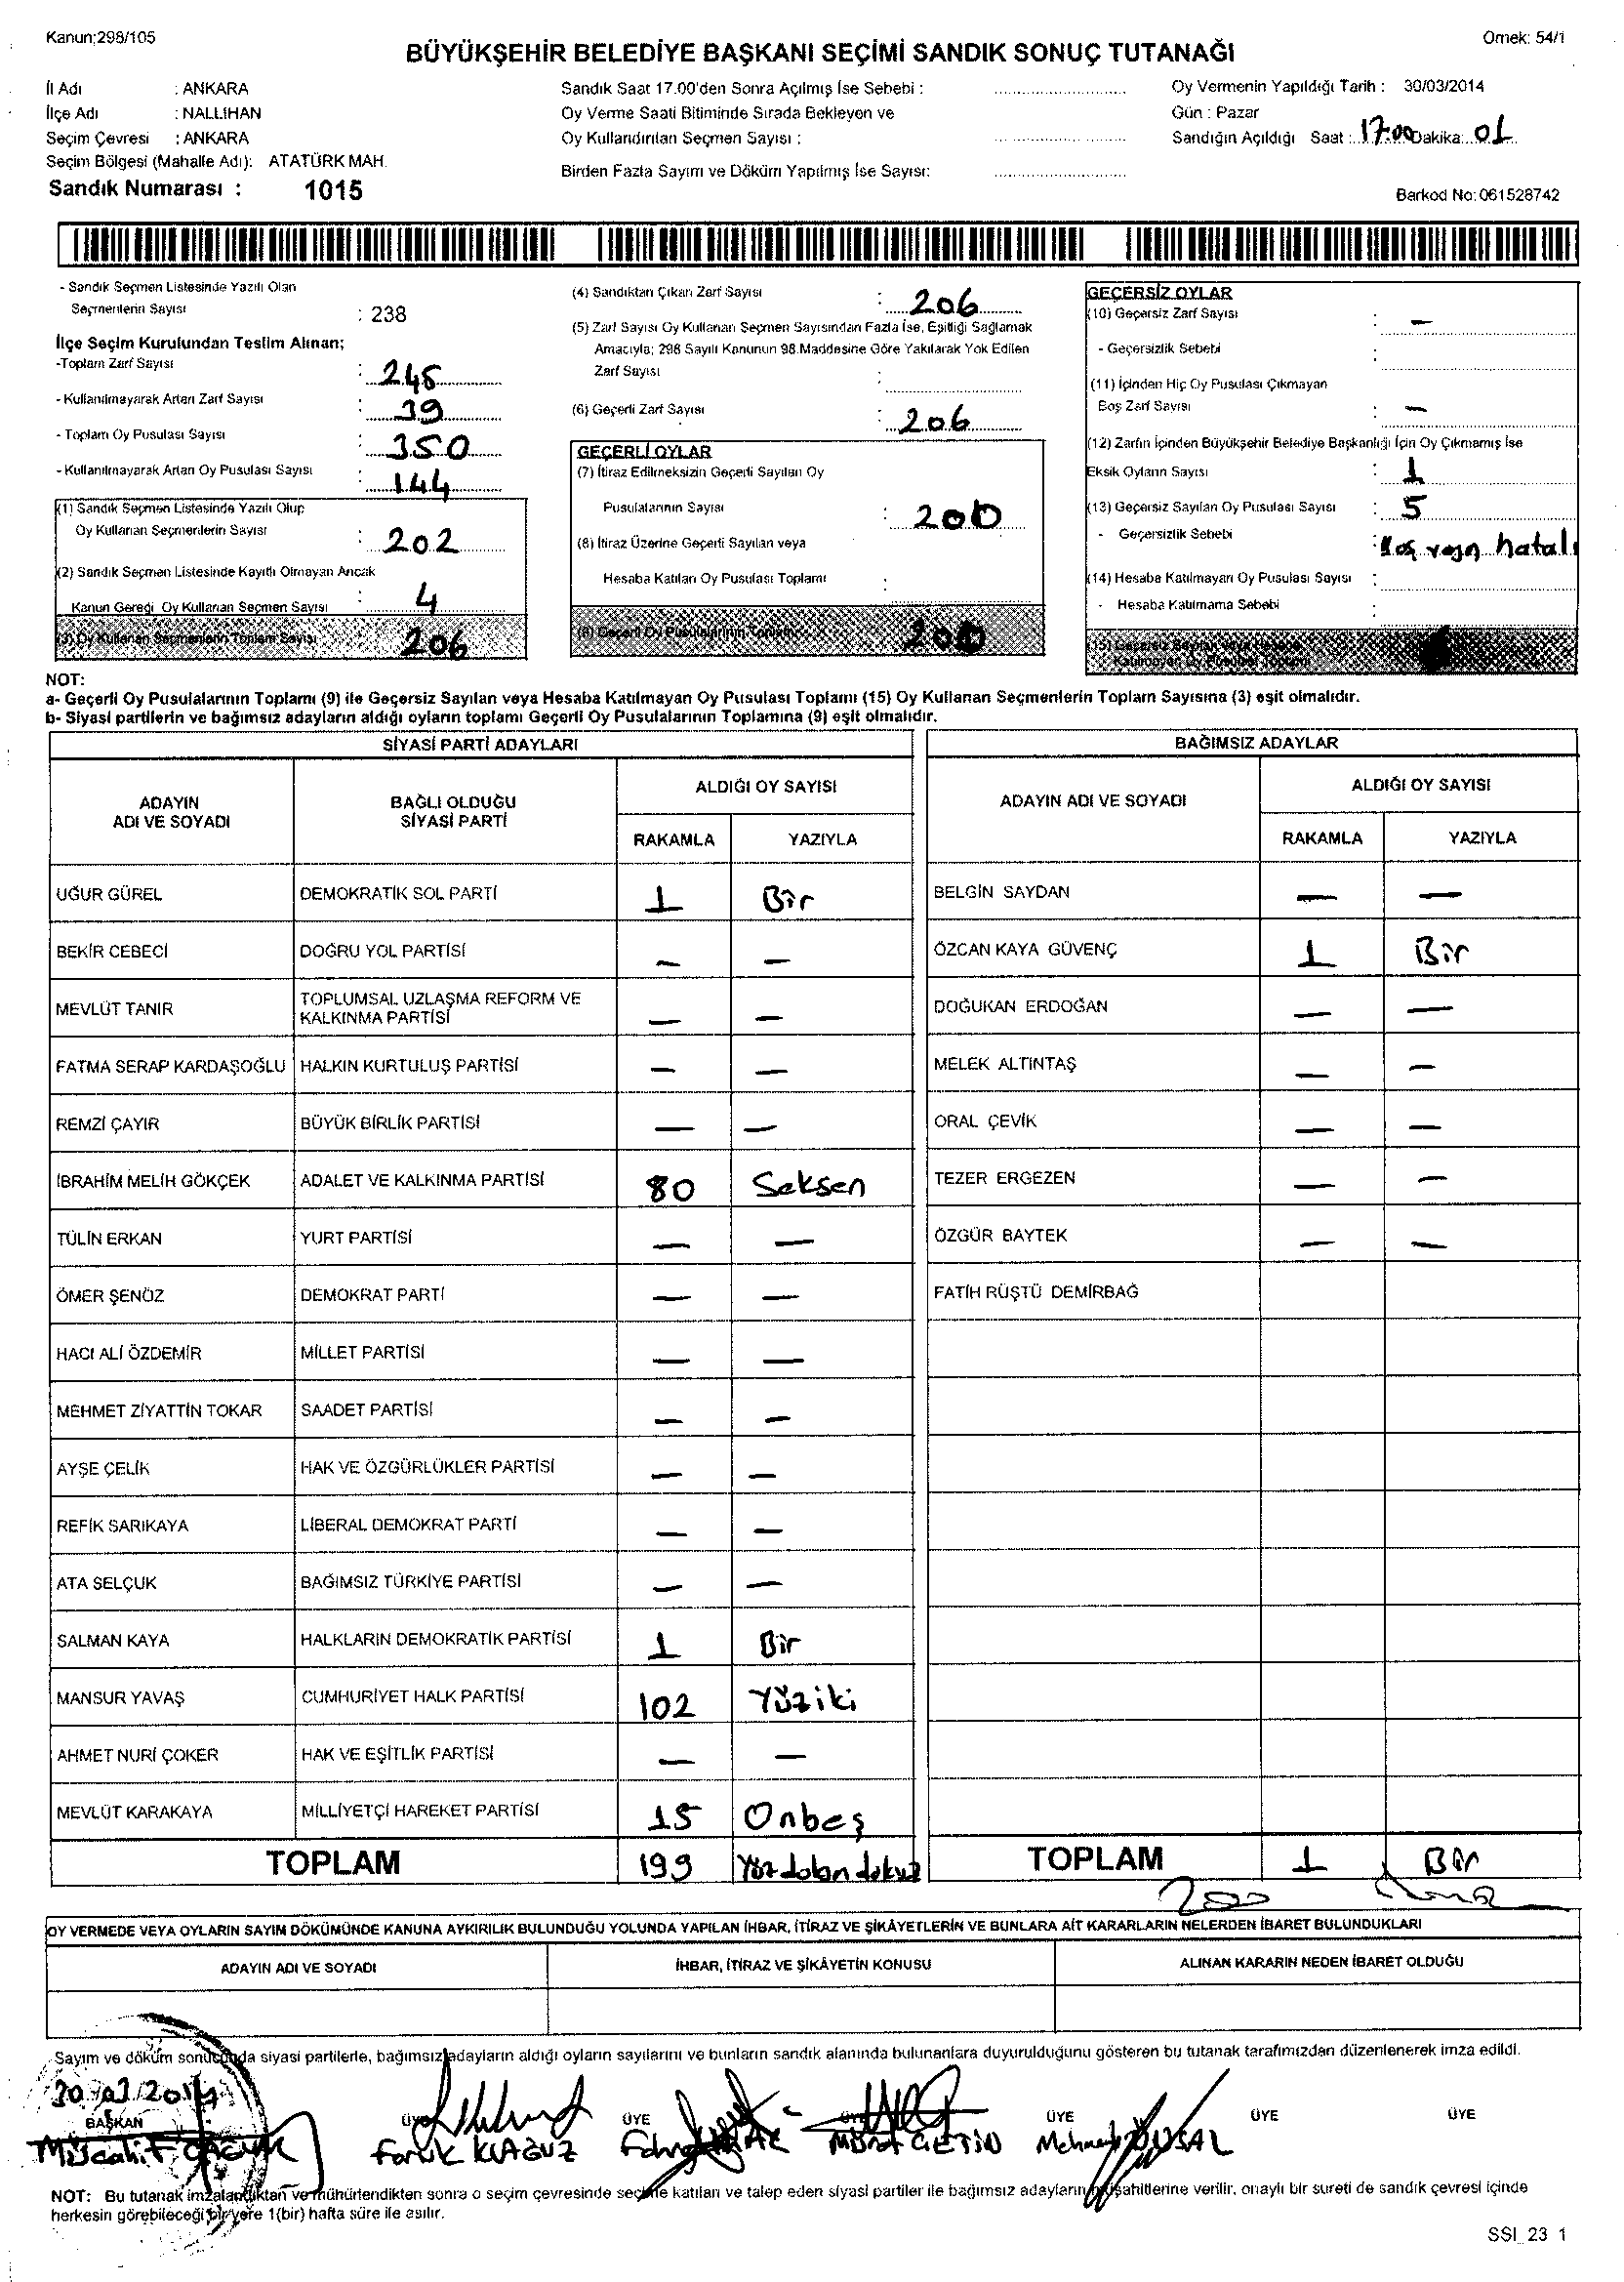 Kanun:298/105
Örnek: 54/1
BÜYÜKŞEHİR BELEDİYE BAŞKANI SEÇİMİ SANDIK SONUÇ TUTANAĞI
İl Adı : ANKARA
İlçe Adı : NALLIHAN
Seçim Çevresi : ANKARA
Seçim Bölgesi (Mahalle Adı): ATATÜRK MAH.
Sandık Numarası : 1015
Sandık Saat 17.00'den Sonra Açılmış İse Sebebi :
Oy Verme Saati Bitiminde Sırada Bekleyen ve
Oy Kullandırılan Seçmen Sayısı :
Birden Fazla Sayım ve Döküm Yapılmış İse Sayısı:
Oy Vermenin Yapıldığı Tarih : 30/03/2014
Gün : Pazar
Sandığın Açıldığı Saat : 17:00 Dakika: 01
Barkod No:061528742
- Sandık Seçmen Listesinde Yazılı Olan
Seçmenlerin Sayısı : 238
İlçe Seçim Kurulundan Teslim Alınan;
-Toplam Zarf Sayısı : 245
- Kullanılmayarak Artan Zarf Sayısı : 39
- Toplam Oy Pusulası Sayısı : 350
- Kullanılmayarak Artan Oy Pusulası Sayısı : 144
(1) Sandık Seçmen Listesinde Yazılı Olup
Oy Kullanan Seçmenlerin Sayısı : 202
(2) Sandık Seçmen Listesinde Kayıtlı Olmayan Ancak
Kanun Gereği Oy Kullanan Seçmen Sayısı : 4
(3) Oy Kullanan Seçmenlerin Toplam Sayısı 206
(4) Sandıktan Çıkan Zarf Sayısı : 206
(5) Zarf Sayısı Oy Kullanan Seçmen Sayısından Fazla İse, Eşitliği Sağlamak
Amacıyla; 298 Sayılı Kanunun 98.Maddesine Göre Yakılarak Yok Edilen
Zarf Sayısı :
(6) Geçerli Zarf Sayısı : 206
GEÇERLİ OYLAR
(7) İtiraz Edilmeksizin Geçerli Sayılan Oy
Pusulalarının Sayısı : 200
(8) İtiraz Üzerine Geçerli Sayılan veya
Hesaba Katılan Oy Pusulası Toplamı :
(9) Geçerli Oy Pusulalarının Toplamı 200
GEÇERSİZ OYLAR
(10) Geçersiz Zarf Sayısı : —
- Geçersizlik Sebebi :
(11) İçinden Hiç Oy Pusulası Çıkmayan
Boş Zarf Sayısı : —
(12) Zarfın İçinden Büyükşehir Belediye Başkanlığı İçin Oy Çıkmamış İse
Eksik Oyların Sayısı : 1
(13) Geçersiz Sayılan Oy Pusulası Sayısı : 5
- Geçersizlik Sebebi : hatalı
(14) Hesaba Katılmayan Oy Pusulası Sayısı :
- Hesaba Katılmama Sebebi :
(15) Geçersiz Sayılan veya Hesaba
Katılmayan Oy Pusulası Toplamı 6
NOT:
a- Geçerli Oy Pusulalarının Toplamı (9) ile Geçersiz Sayılan veya Hesaba Katılmayan Oy Pusulası Toplamı (15) Oy Kullanan Seçmenlerin Toplam Sayısına (3) eşit olmalıdır.
b- Siyasi partilerin ve bağımsız adayların aldığı oyların toplamı Geçerli Oy Pusulalarının Toplamına (9) eşit olmalıdır.
SİYASİ PARTİ ADAYLARI
ADAYIN ADI VE SOYADI BAĞLI OLDUĞU SİYASİ PARTİ ALDIĞI OY SAYISI
RAKAMLA YAZIYLA
UĞUR GÜREL DEMOKRATİK SOL PARTİ 1 Bir
BEKİR CEBECİ DOĞRU YOL PARTİSİ — —
MEVLÜT TANIR TOPLUMSAL UZLAŞMA REFORM VE KALKINMA PARTİSİ — —
FATMA SERAP KARDAŞOĞLU HALKIN KURTULUŞ PARTİSİ — —
REMZİ ÇAYIR BÜYÜK BİRLİK PARTİSİ — —
İBRAHİM MELİH GÖKÇEK ADALET VE KALKINMA PARTİSİ 80 Seksen
TÜLİN ERKAN YURT PARTİSİ — —
ÖMER ŞENÖZ DEMOKRAT PARTİ — —
HACI ALİ ÖZDEMİR MİLLET PARTİSİ — —
MEHMET ZİYATTİN TOKAR SAADET PARTİSİ — —
AYŞE ÇELİK HAK VE ÖZGÜRLÜKLER PARTİSİ — —
REFİK SARIKAYA LİBERAL DEMOKRAT PARTİ — —
ATA SELÇUK BAĞIMSIZ TÜRKİYE PARTİSİ — —
SALMAN KAYA HALKLARIN DEMOKRATİK PARTİSİ 1 Bir
MANSUR YAVAŞ CUMHURİYET HALK PARTİSİ 102 Yüziki
AHMET NURİ ÇOKER HAK VE EŞİTLİK PARTİSİ — —
MEVLÜT KARAKAYA MİLLİYETÇİ HAREKET PARTİSİ 15 Onbeş
TOPLAM 199 Yüz doksan dokuz
BAĞIMSIZ ADAYLAR
ADAYIN ADI VE SOYADI ALDIĞI OY SAYISI
RAKAMLA YAZIYLA
BELGİN SAYDAN — —
ÖZCAN KAYA GÜVENÇ 1 Bir
DOĞUKAN ERDOĞAN — —
MELEK ALTINTAŞ — —
ORAL ÇEVİK — —
TEZER ERGEZEN — —
ÖZGÜR BAYTEK — —
FATİH RÜŞTÜ DEMİRBAĞ
TOPLAM 1 Bir
200
OY VERMEDE VEYA OYLARIN SAYIM DÖKÜMÜNDE KANUNA AYKIRILIK BULUNDUĞU YOLUNDA YAPILAN İHBAR, İTİRAZ VE ŞİKÂYETLERİN VE BUNLARA AİT KARARLARIN NELERDEN İBARET BULUNDUKLARI
ADAYIN ADI VE SOYADI İHBAR, İTİRAZ VE ŞİKÂYETİN KONUSU ALINAN KARARIN NEDEN İBARET OLDUĞU
Sayım ve döküm sonucunda siyasi partilerle, bağımsız adayların aldığı oyların sayılarını ve bunların sandık alanında bulunanlara duyurulduğunu gösteren bu tutanak tarafımızdan düzenlenerek imza edildi.
30/03/2014
BAŞKAN ÜYE ÜYE ÜYE ÜYE ÜYE ÜYE
Mücahit Faruk KLAĞUZ Murat ÇETİN Mehmet
NOT: Bu tutanak imzalandıktan ve mühürlendikten sonra o seçim çevresinde seçime katılan ve talep eden siyasi partiler ile bağımsız adayların müşahitlerine verilir, onaylı bir sureti de sandık çevresi içinde
herkesin görebileceği bir yere 1(bir) hafta süre ile asılır.
SSI_23 1